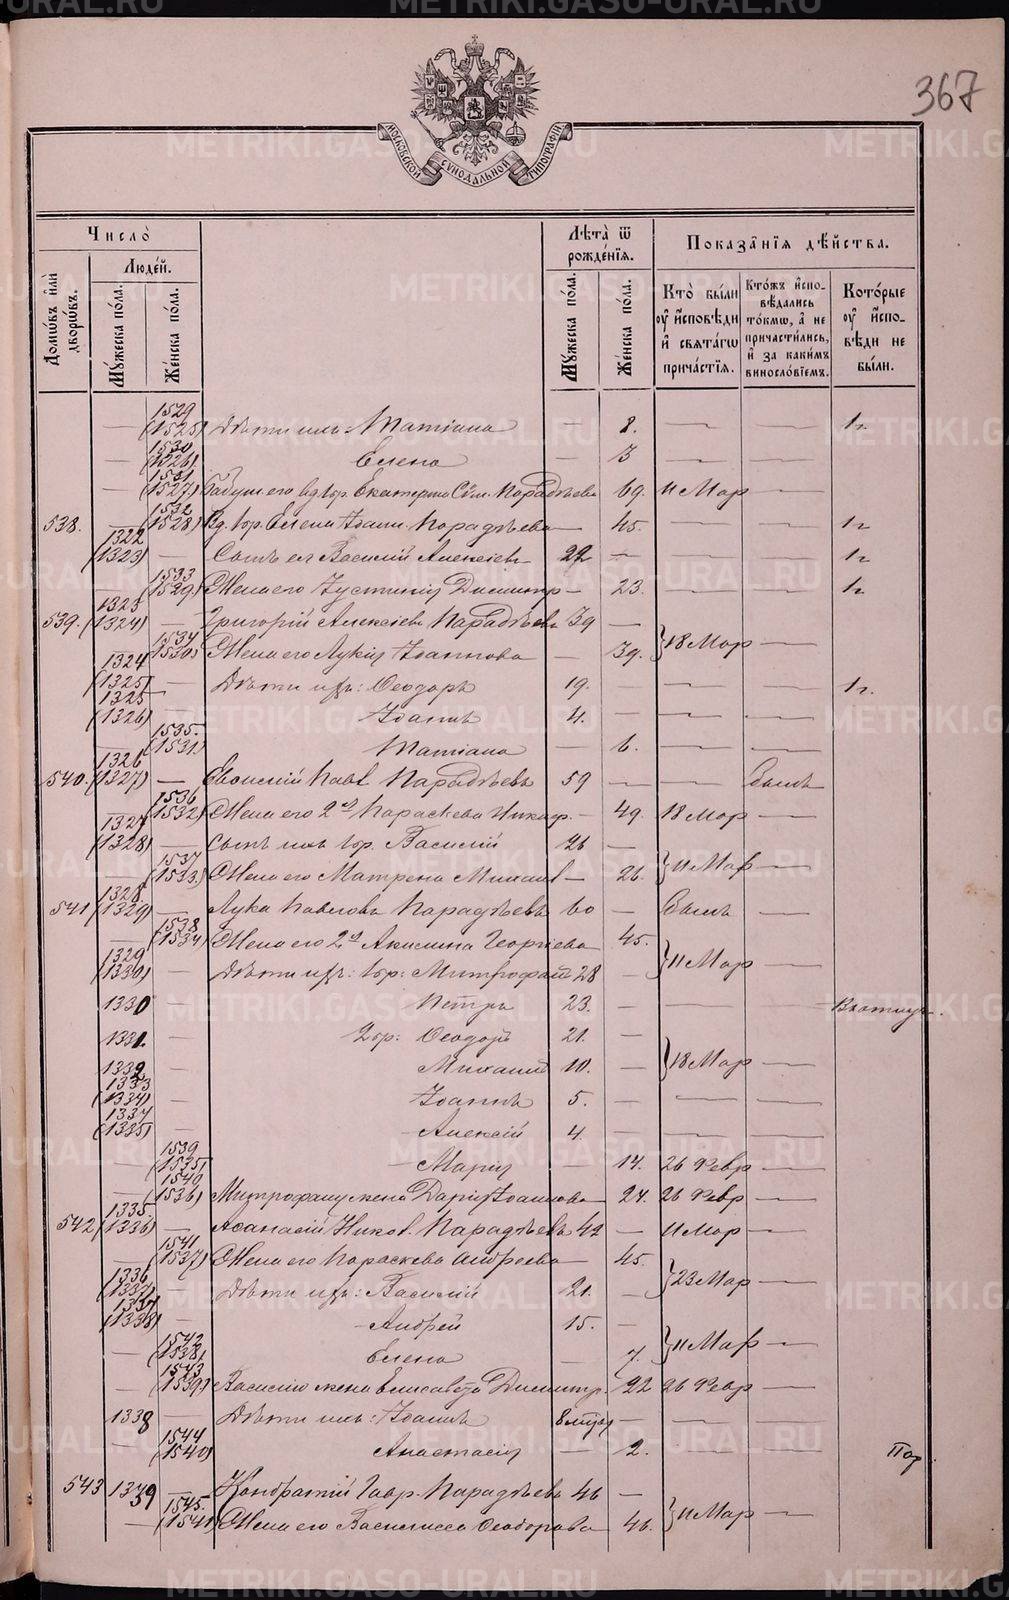 367
МОСКОВСКОЙ СѴНОДАЛЬНОЙ ТИПОГРАФІИ
Число̀
Домѡ́въ и҆лѝ дворѡ́въ.
Люде́й.
Мꙋ́жеска по́ла.
Же́нска по́ла.
Лѣ́та ѿ рожде́нїѧ.
Мꙋ́жеска по́ла.
Же́нска по́ла.
Показа̑нїѧ дѣ́йства.
Кто̀ бы́ли ᲂу҆ и҆сповѣ́ди и҆ свѧта́гѡ прича́стїѧ.
Кто́жъ и҆сповѣ́дались то́кмѡ, а҆ не причасти́лись, и҆ за каки́мъ винослѡ́вїемъ.
Кото́рые ᲂу҆ и҆сповѣ́ди не бы́ли.
— 1529 (1525) Дѣти ихъ: Татіана — 8. — — 1н
— 1530 (1526) Елена — 3 — —
— 1531 (1527) Екатерина Парадѣева 69. 11 Мар —
538. — 1532 (1528) Вд. Елена Іоан. Парадѣева — 45. — — 1н
1322 (1323) — Сынъ ея Василій Алексіевъ 22 — — — 1н
— 1533 (1529) Жена его Іустинія Димитр — 23. — — 1н
539. 1323 (1324) — Григорій Алексіевъ Парадѣевъ 39 —
— 1534 (1530) Жена его Лукія Іоаннова — 39. } 18 Мар —
1324 (1325) — Дѣти ихъ: Ѳеодоръ 19. — — — 1н.
1325 (1326) — Іоаннъ 4. — — —
— 1535. (1531) Татіана — 6. — —
540. 1326 (1327) — Павл Парадѣевъ 59 — — Былъ
— 1536 (1532) Жена его 2я Параскева Никиф. — 49. 18 Мар —
1327 (1328) — Сынъ ихъ Василій 26 —
— 1537 (1533) Жена его Матрена Михаил — 26. } 11 Мар —
541 1328 (1329) — Лука Павловъ Парадѣевъ 60 — Былъ —
— 1538 (1534) Жена его 2я Акилина Георгіева 45.
1329 (1330) — Дѣти ихъ: Митрофанъ 28 — } 11 Мар —
1330 — Петръ 23. — — —
1331. — Ѳеодоръ 21. —
1332 — Михаилъ 10. — } 18 Мар —
1333 (1334) — Іоаннъ 5. — — —
1334 (1335) — Алексій 4. — — —
— 1539 (1535) Марія — 14. 26 Февр —
— 1540 (1536) Митрофану жена Дарія Іоаннова — 24. 26 Февр —
542 1335. (1336) — Аѳанасій Никол. Парадѣевъ 42 — 11 Мар —
— 1541 (1537) Жена его Параскева Андреева — 45.
1336 (1337) — Дѣти ихъ: Василій 21. — } 23 Мар —
1337 (1338) — Андрей 15. —
— 1542 (1538) Елена — 7. } 11 Мар —
— 1543 (1539) Василію жена Елисавета Димитр. 22 26 Февр —
1338 — Дѣти ихъ: Іоаннъ — — —
— 1544 (1540) Анастасія — 2. — —
543 1339 — Кондратій Гавр. Парадѣевъ 46 —
— 1545. (1541) Жена его Василисса Ѳеодорова — 46. } 11 Мар —